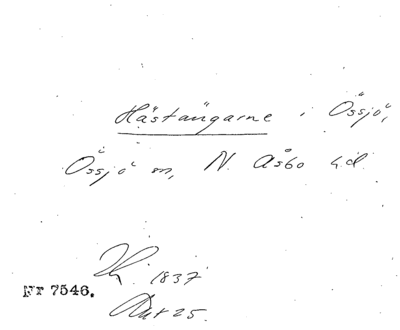 Hästängarne i Össjö,
Össjö sn, N. Åsbo hd.
1837
Nr 7546.
Akt 25.